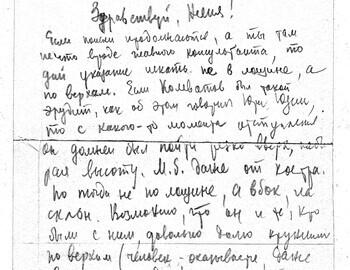 Здравствуй, Неля!
Если поиски продолжаются, а ты там
нечто вроде главного консультанта, то
дай указание искать не в лощине, а
по верхам. Если Колеватов был такой
эрудит, как об этом говорит Юри Юдин,
то с какого-то момента отступления
он должен был пойти резко вверх, наби
рал высоту. М.б. даже от костра.
Но тогда не по лощине, а вбок, на
склон. Возможно, что он и те, кто
были с ним, довольно долго кружили
по верхам (человек - оказывается даже